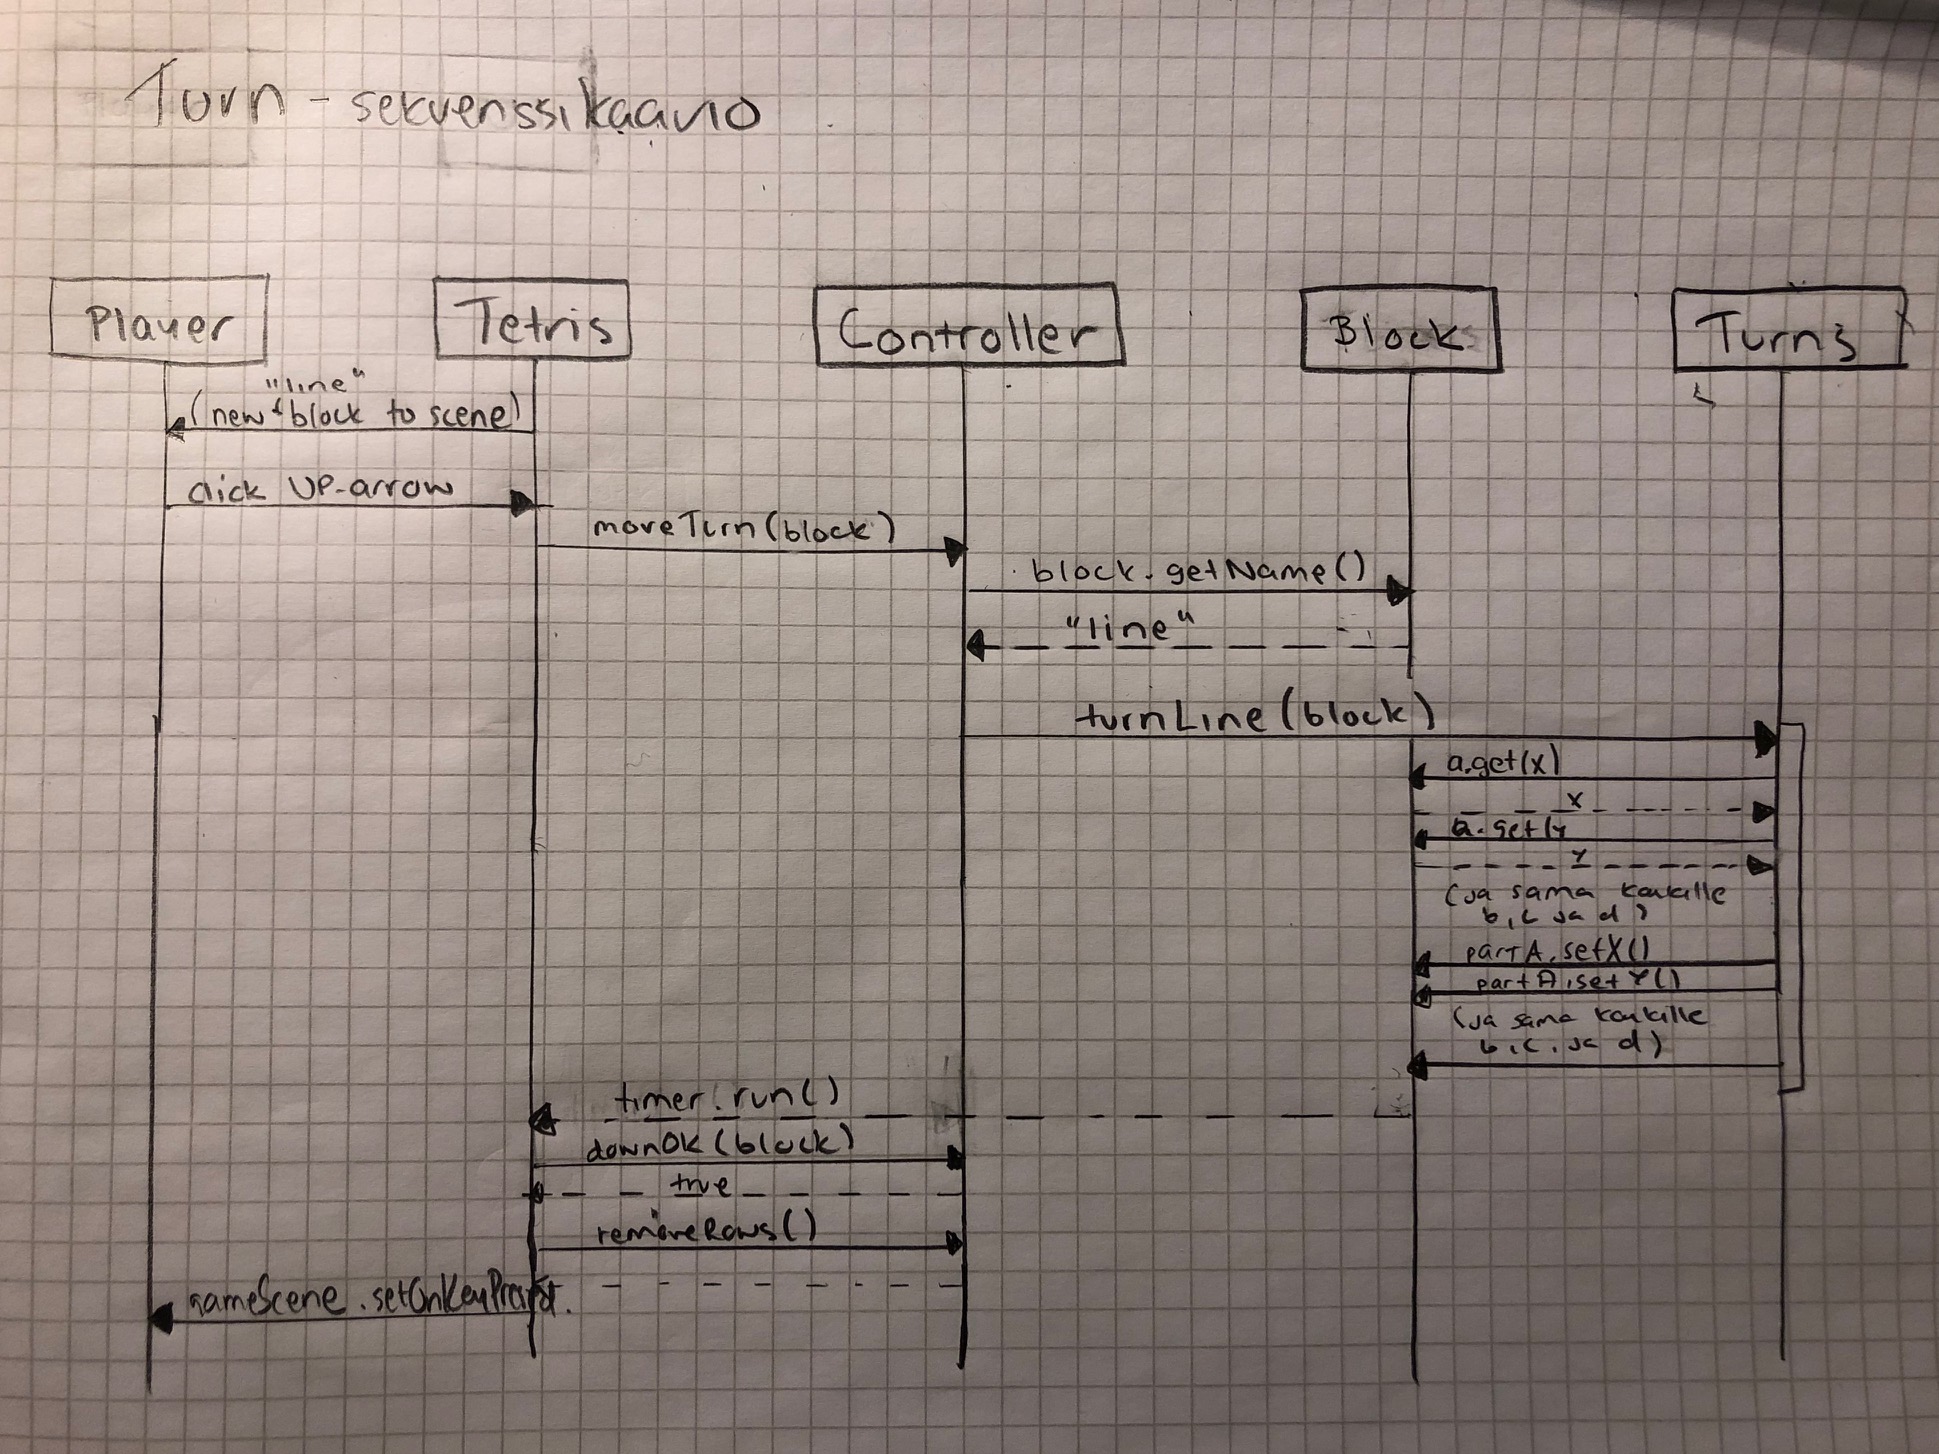 Turn - sekvenssikaavio
Player
Tetris
Controller
Block
Turns
"line"
(new block to scene)
click UP-arrow
moveTurn(block)
block.getName()
"line"
turnLine(block)
a.get(x)
x
a.get(y
y
(ja sama kaikille
b, c ja d)
partA.setX()
partA.setY()
(ja sama kaikille
b, c, ja d)
timer.run()
downOk(block)
true
removeRows()
gameScene.setOnKeyPressed.